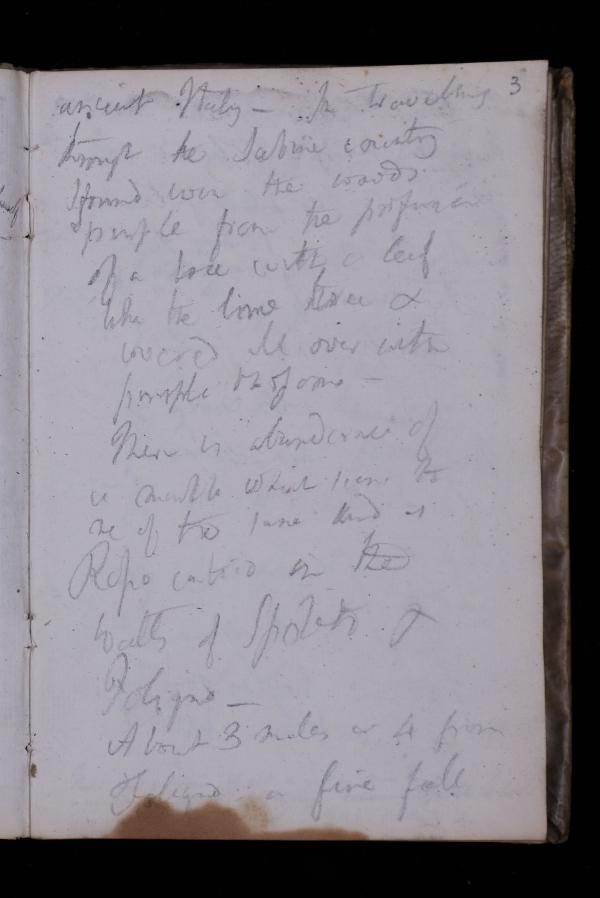 3
ancient Italy – In travelling
through the Sabine country
I found even the woods
purple from the profusion
of a tree with a leaf
like the lime tree &
covered all over with
purple blossoms –
There is abundance of
a marble which seems to
me of the same kind as
on the
walls of Spoleto &
Foligno –
About 3 miles or 4 from
Foligno a fine fall